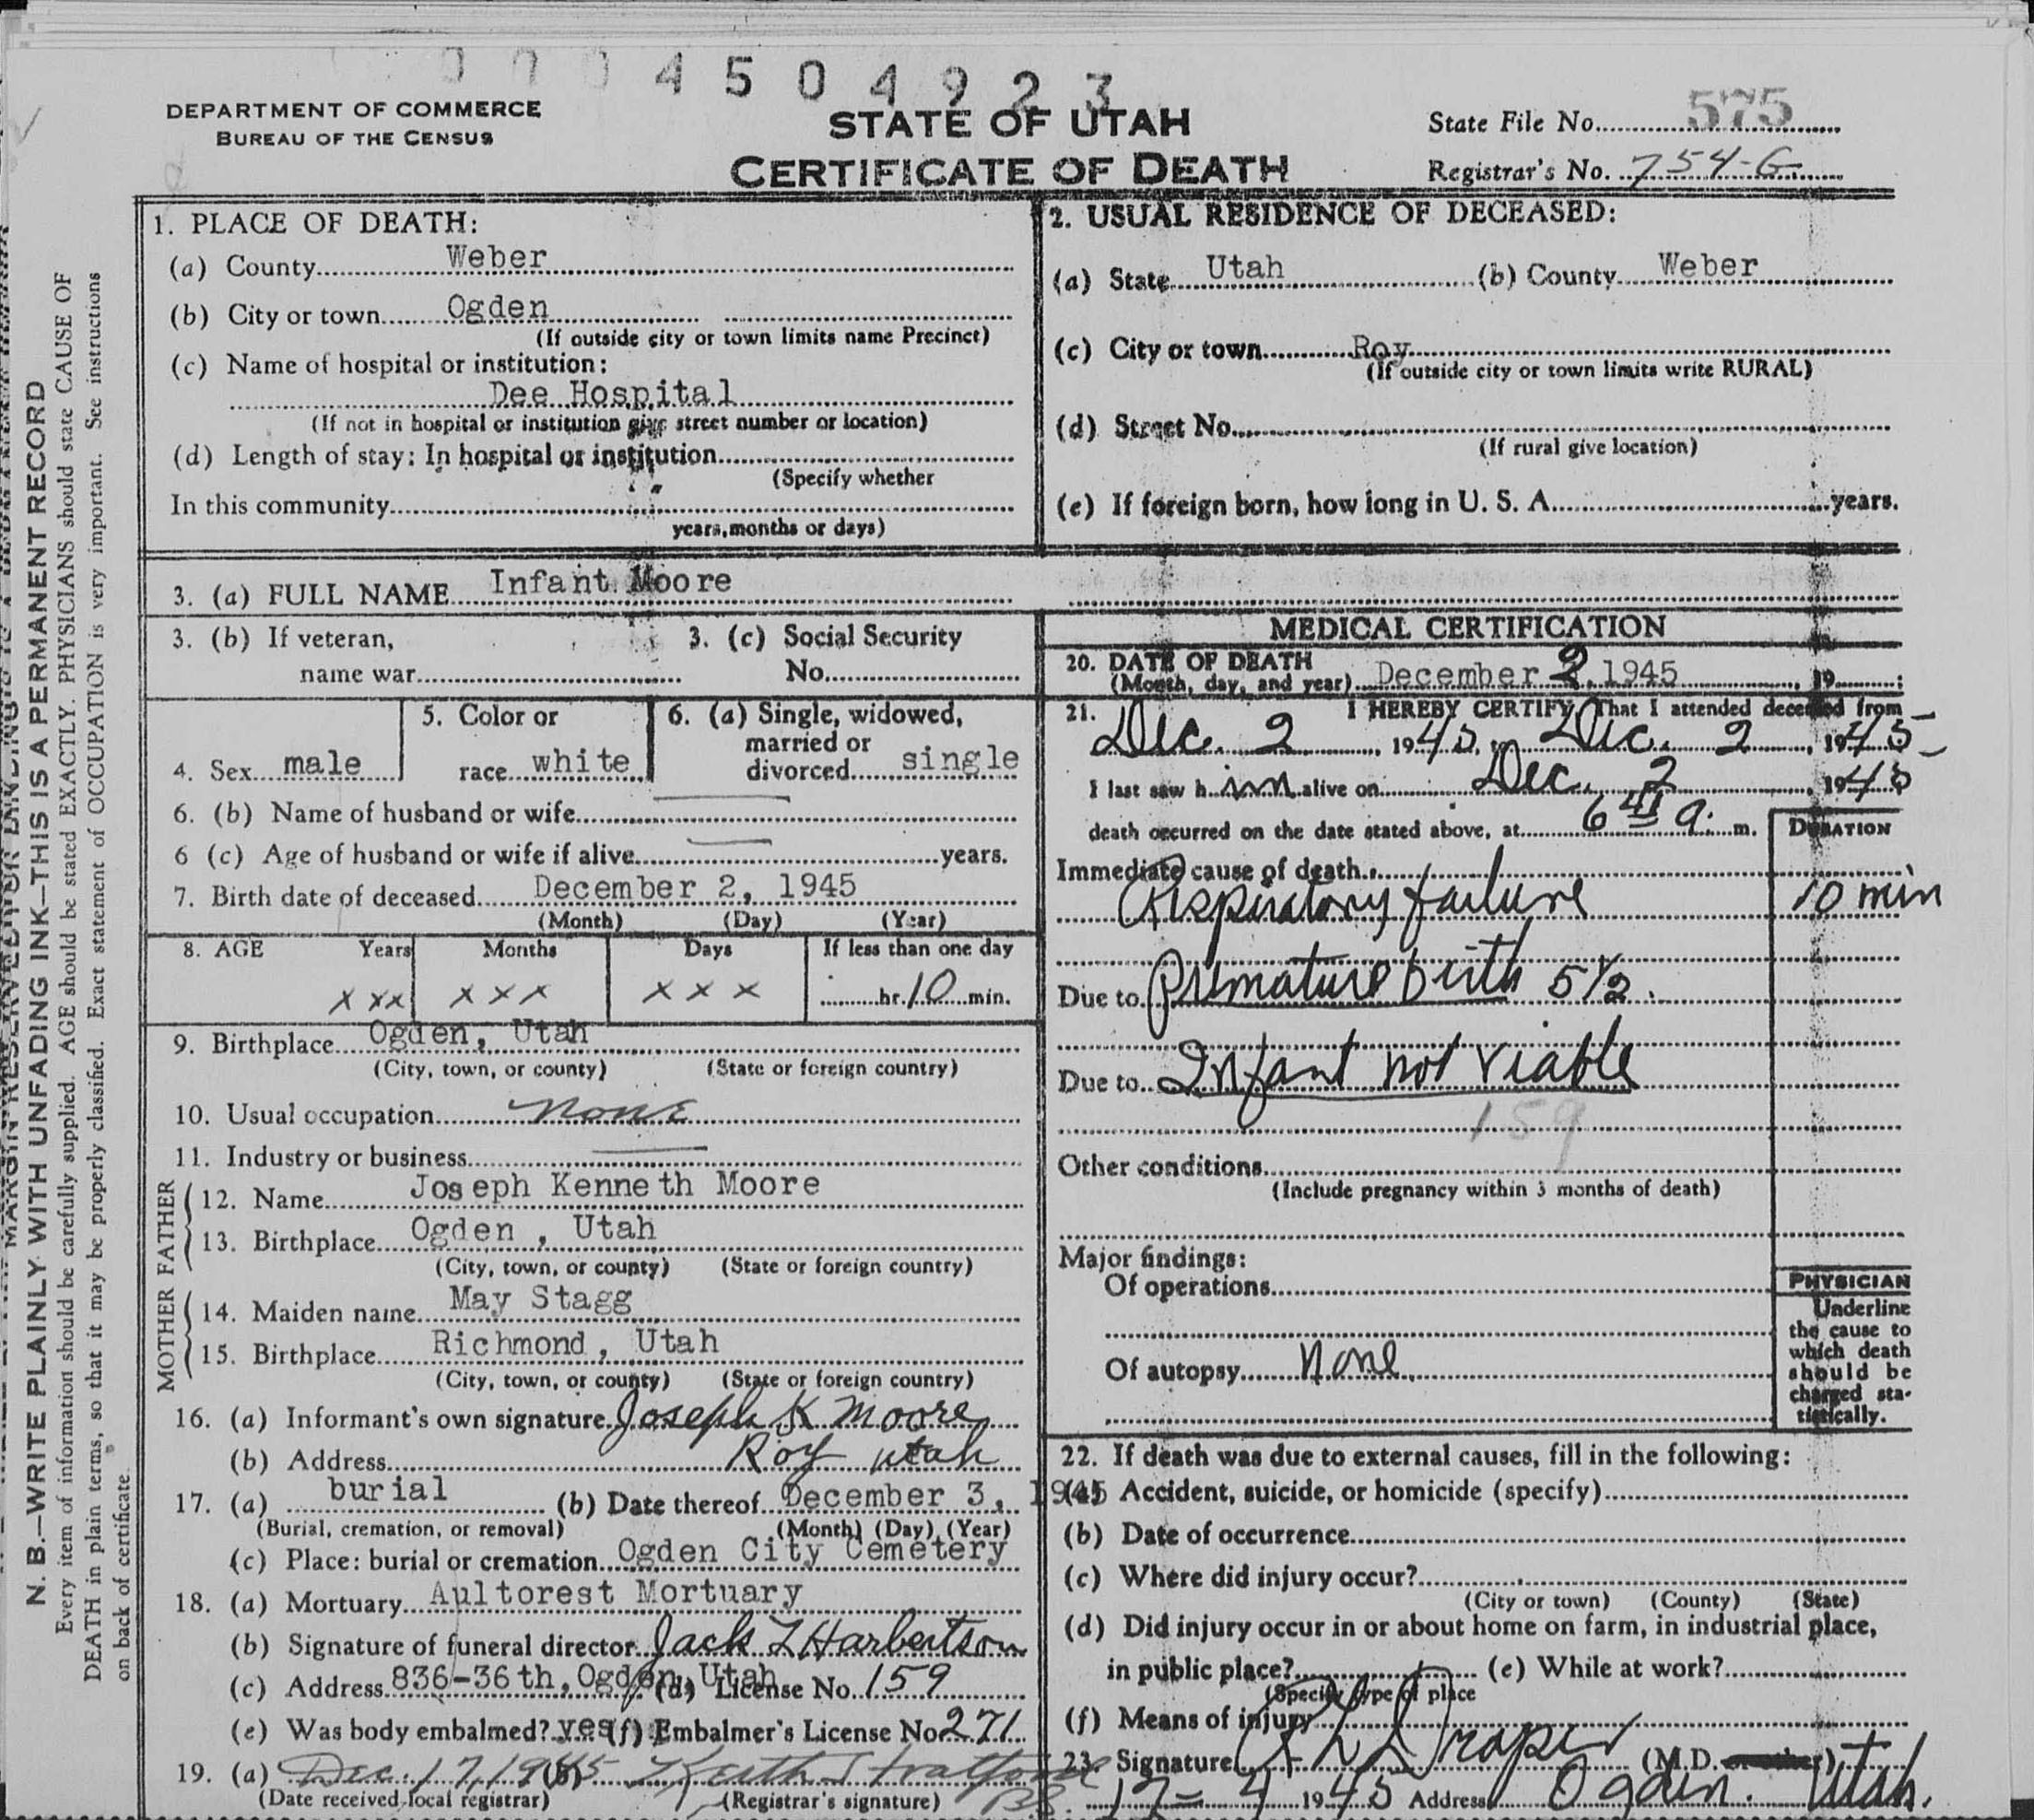 4504923
DEPARTMENT OF COMMERCE
BUREAU OF THE CENSUS
STATE OF UTAH
CERTIFICATE OF DEATH
State File No. 575
Registrar's No. 754-G
N. B.—WRITE PLAINLY WITH UNFADING INK—THIS IS A PERMANENT RECORD
Every item of information should be carefully supplied. AGE should be stated EXACTLY. PHYSICIANS should state CAUSE OF
DEATH in plain terms, so that it may be properly classified. Exact statement of OCCUPATION is very important. See instructions
on back of certificate
1. PLACE OF DEATH:
(a) County Weber
(b) City or town Ogden
(If outside city or town limits name Precinct)
(c) Name of hospital or institution:
Dee Hospital
(If not in hospital or institution give street number or location)
(d) Length of stay: In hospital or institution
(Specify whether
In this community
years, months or days)
2. USUAL RESIDENCE OF DECEASED:
(a) State Utah (b) County Weber
(c) City or town Roy
(If outside city or town limits write RURAL)
(d) Street No.
(If rural give location)
(e) If foreign born, how long in U. S. A. years.
3. (a) FULL NAME Infant Moore
3. (b) If veteran,
name war
3. (c) Social Security
No.
4. Sex male
5. Color or
race white
6. (a) Single, widowed,
married or
divorced single
6. (b) Name of husband or wife
6 (c) Age of husband or wife if alive years.
7. Birth date of deceased December 2, 1945
(Month) (Day) (Year)
8. AGE Years Months Days If less than one day
xxx xxx xxx hr. 10 min.
9. Birthplace Ogden, Utah
(City, town, or county) (State or foreign country)
10. Usual occupation none
11. Industry or business
FATHER
12. Name Joseph Kenneth Moore
13. Birthplace Ogden, Utah
(City, town, or county) (State or foreign country)
MOTHER
14. Maiden name May Stagg
15. Birthplace Richmond, Utah
(City, town, or county) (State or foreign country)
16. (a) Informant's own signature Joseph K Moore
(b) Address Roy Utah
17. (a) burial (b) Date thereof December 3, 1945
(Burial, cremation, or removal) (Month) (Day) (Year)
(c) Place: burial or cremation Ogden City Cemetery
18. (a) Mortuary Aultorest Mortuary
(b) Signature of funeral director Jack L Harbertson
(c) Address 836-36th, Ogden, Utah (d) License No. 159
(e) Was body embalmed? yes (f) Embalmer's License No. 271
19. (a) Dec. 17, 1945 (b) Keith Stratford
(Date received local registrar) (Registrar's signature)
MEDICAL CERTIFICATION
20. DATE OF DEATH
(Month, day, and year) December 2, 1945, 19
21. I HEREBY CERTIFY, That I attended deceased from
Dec. 2, 1945, to Dec. 2, 1945
I last saw him alive on Dec. 2, 1945
death occurred on the date stated above, at 6 41 a. m.
DURATION
Immediate cause of death
Respiratory failure 10 min
Due to Premature birth 5 1/2.
Due to Infant not viable
159
Other conditions
(Include pregnancy within 3 months of death)
Major findings:
Of operations
Of autopsy none
PHYSICIAN
Underline
the cause to
which death
should be
charged sta-
tistically.
22. If death was due to external causes, fill in the following:
(a) Accident, suicide, or homicide (specify)
(b) Date of occurrence
(c) Where did injury occur?
(City or town) (County) (State)
(d) Did injury occur in or about home on farm, in industrial place,
in public place? (e) While at work?
(Specify type of place
(f) Means of injury
23. Signature Draper (M.D. or other)
12-4 1945 Address Ogden. Utah.